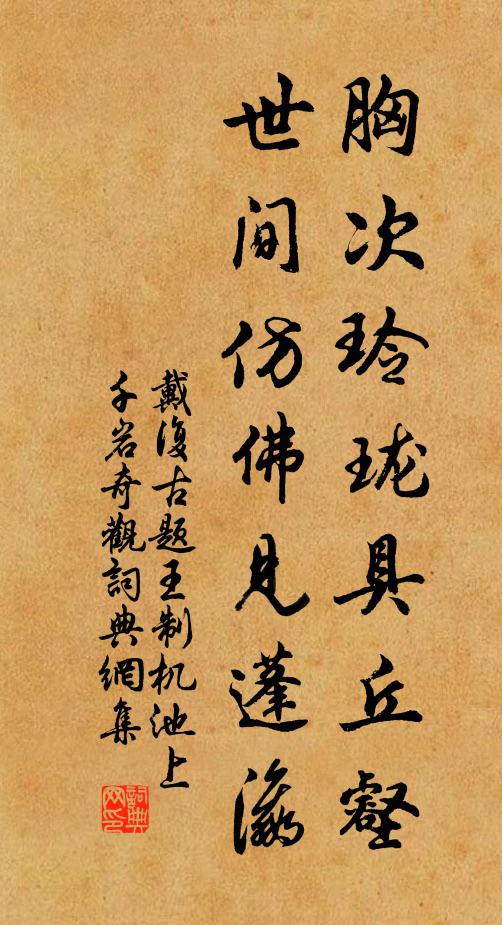 胸次玲珑具丘壑
世间仿佛见蓬瀛
戴復古题王制机池上
千岩奇觀詞典網集
詞典網印